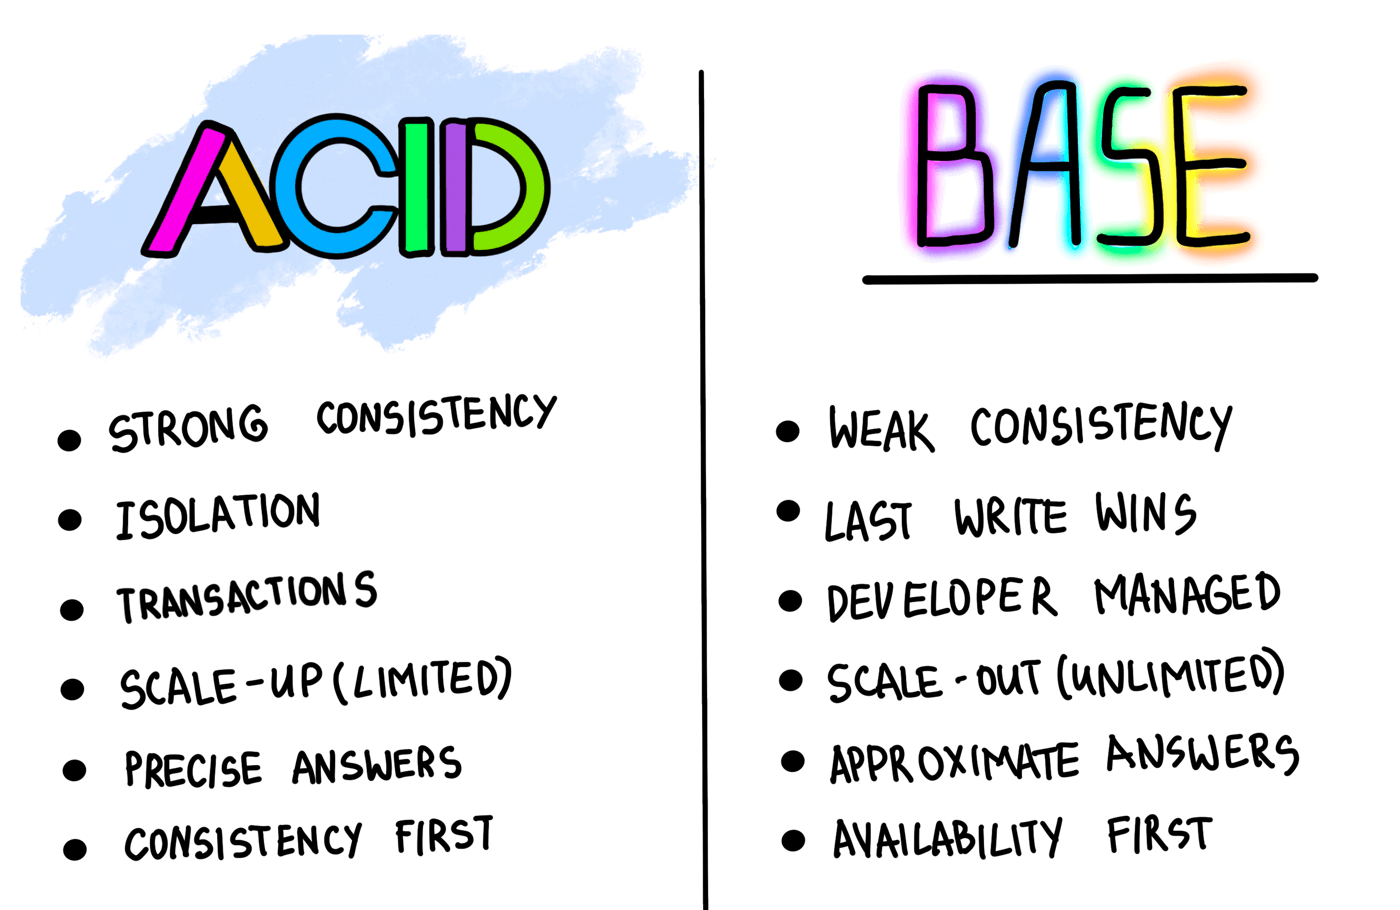 ACID
• STRONG CONSISTENCY
• ISOLATION
• TRANSACTIONS
• SCALE-UP (LIMITED)
• PRECISE ANSWERS
• CONSISTENCY FIRST
BASE
• WEAK CONSISTENCY
• LAST WRITE WINS
• DEVELOPER MANAGED
• SCALE-OUT (UNLIMITED)
• APPROXIMATE ANSWERS
• AVAILABILITY FIRST